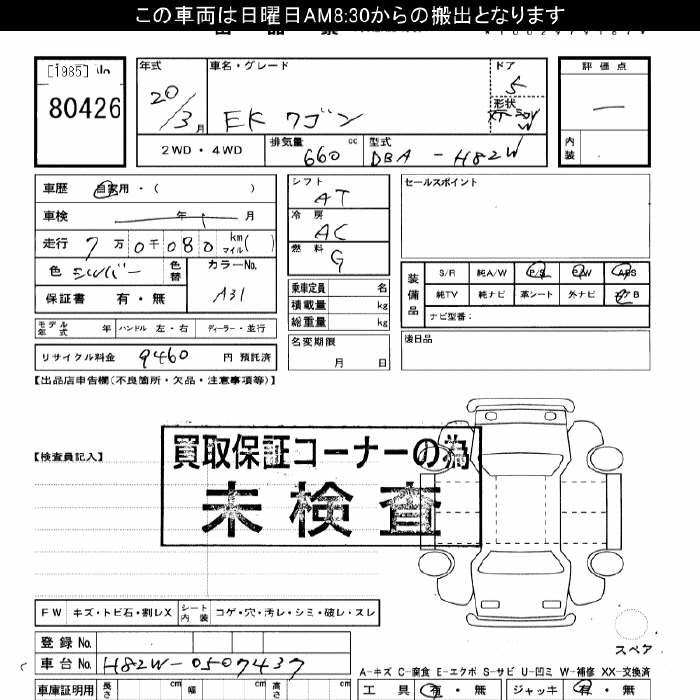 この車両は日曜日AM8:30からの搬出となります
[1985]
80426
年式
20/3月
車名・グレード
EK ワゴン
ドア
5
形状
評価点
内装
2WD・4WD
排気量 660 cc
型式 DBA-H82W
車歴 自家用・( )
車検 年 月
走行 7万0千080 km マイル( )
色 シルバー 色替
カラーNo. A31
保証書 有・無
シフト AT
冷房 AC
燃料 G
乗車定員 名
積載量 kg
総重量 kg
名変期限 月 日
セールスポイント
装備品
S/R 純A/W P/S P/W ABS
純TV 純ナビ 革シート 外ナビ エアB
ナビ型番:
後日品
モデル年式 年 ハンドル 左・右 ディーラー・並行
リサイクル料金 9460 円 預託済
【出品店申告欄(不良箇所・欠品・注意事項等)】
【検査員記入】
買取保証コーナーの為
未検査
FW キズ・トビ石・割レX シート内装 コゲ・穴・汚レ・シミ・破レ・スレ
スペア
登録No.
車台No. H82W-0507437
A-キズ C-腐食 E-エクボ S-サビ U-凹ミ W-補修 XX-交換済
車庫証明用 長さ cm 幅 cm 高さ cm
工具 有・無 ジャッキ 有・無